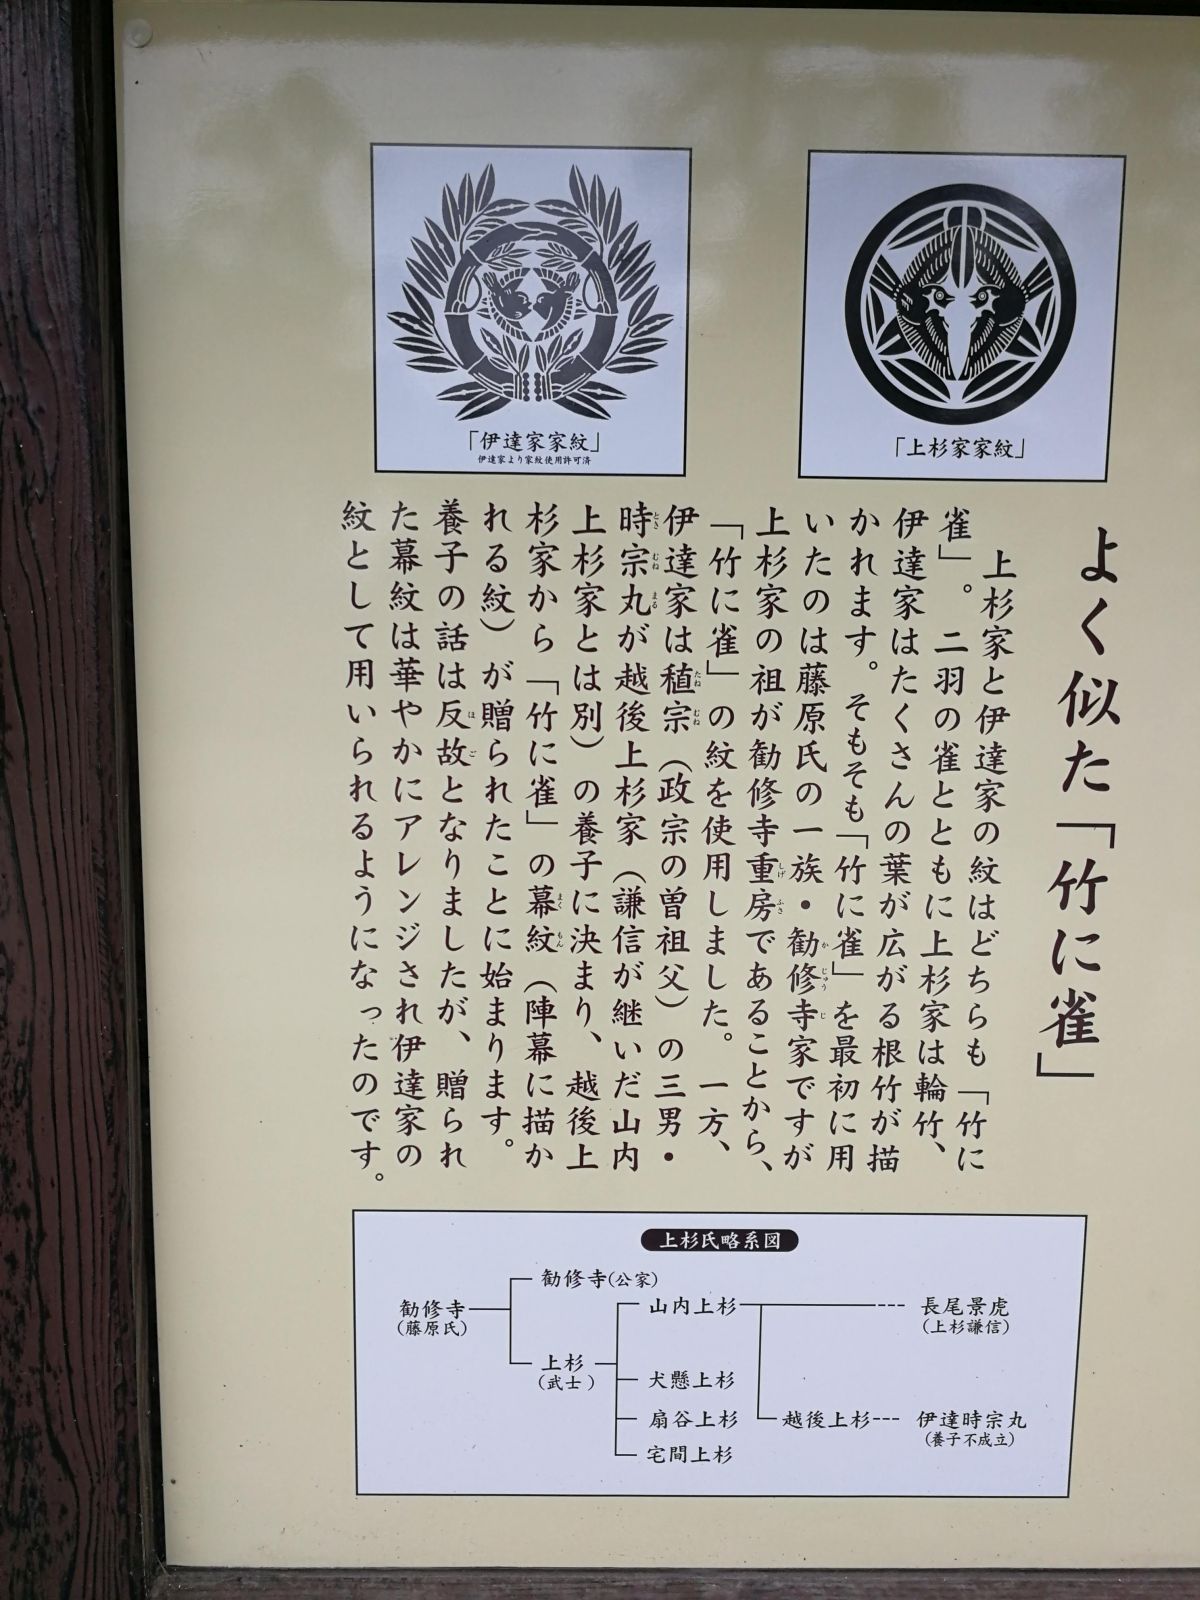 よく似た「竹に雀」
上杉家と伊達家の紋はどちらも「竹に
雀」。二羽の雀とともに上杉家は輪竹、
伊達家はたくさんの葉が広がる根竹が描
かれます。そもそも「竹に雀」を最初に用
いたのは藤原氏の一族・勧修寺家ですが
上杉家の祖が勧修寺重房であることから、
「竹に雀」の紋を使用しました。一方、
伊達家は稙宗（政宗の曽祖父）の三男・
時宗丸が越後上杉家（謙信が継いだ山内
上杉家とは別）の養子に決まり、越後上
杉家から「竹に雀」の幕紋（陣幕に描か
れる紋）が贈られたことに始まります。
養子の話は反故となりましたが、贈られ
た幕紋は華やかにアレンジされ伊達家の
紋として用いられるようになったのです。
「上杉家家紋」
「伊達家家紋」
伊達家より家紋使用許可済
かじゅうじ
しげふさ
たねむね
ときむねまる
まくもん
ほご
上杉氏略系図
勧修寺
(藤原氏)
勧修寺(公家)
上杉
(武士)
山内上杉
犬懸上杉
扇谷上杉
宅間上杉
長尾景虎
(上杉謙信)
越後上杉
伊達時宗丸
(養子不成立)